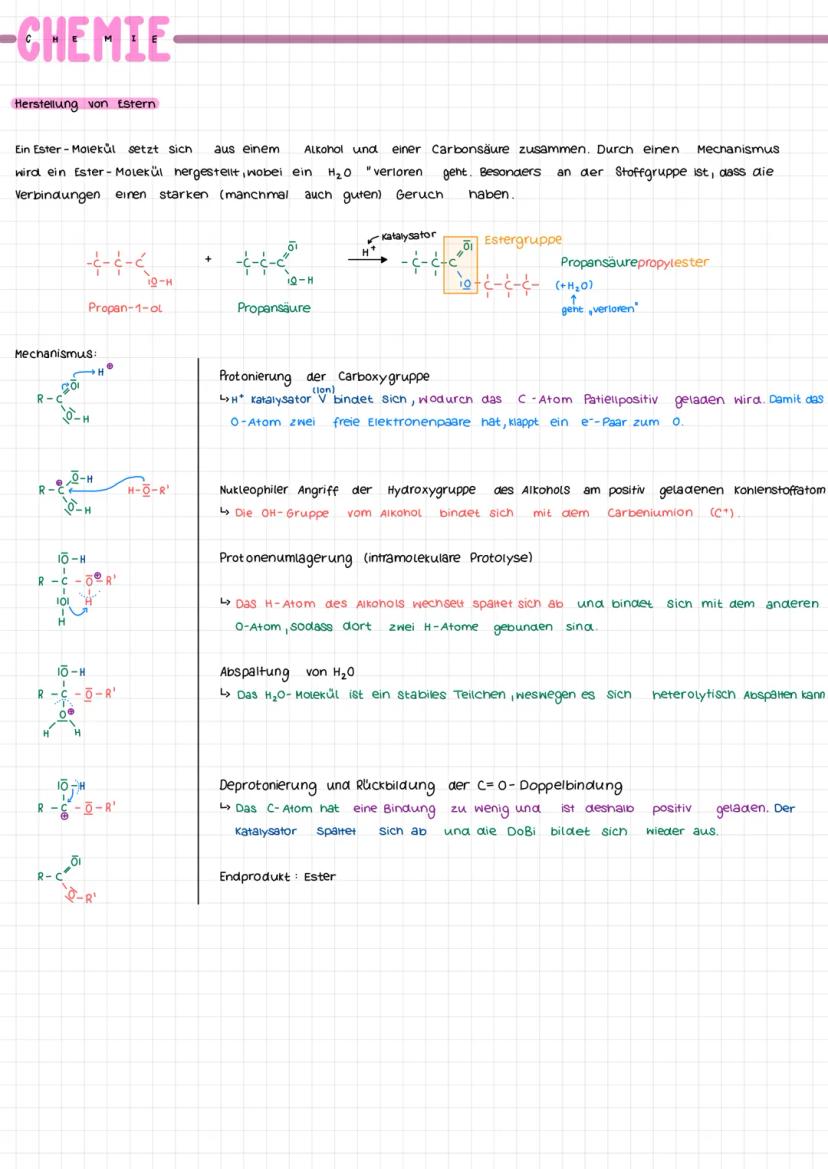 CHEMIE
CHEMIE
Herstellung von Estern
Ein Ester-Molekül setzt sich aus einem Alkohol und einer Carbonsäure zusammen. Durch einen Mechanismus
wird ein Ester-Molekül hergestellt, wobei ein H₂O "verloren geht. Besonders an der Stoffgruppe ist, dass die
Verbindungen einen starken (manchmal auch guten) Geruch haben.
Katalysator
H⁺
Estergruppe
-C-C-C
IO-H
+
-C-C-C
OI
IO-H
-C-C-C
OI
IO-C-C-C-
Propansäurepropylester
(+H₂O)
Propan-1-ol
Propansäure
geht „verloren"
Mechanismus:
R-C
OI
H⊕
O-H
Protonierung der Carboxygruppe
↳ H⁺ Katalysator (Ion) V bindet sich, wodurch das C-Atom Patiellpositiv geladen wird. Damit das
O-Atom zwei freie Elektronenpaare hat, klappt ein e⁻-Paar zum O.
R-C⊕
O-H
O-H
H-O-R'
Nukleophiler Angriff der Hydroxygruppe des Alkohols am positiv geladenen Kohlenstoffatom
↳ Die OH-Gruppe vom Alkohol bindet sich mit dem Carbeniumion (C⁺).
IO-H
R-C-O⊕-R'
IOI H
H
Protonenumlagerung (intramolekulare Protolyse)
↳ Das H-Atom des Alkohols wechselt spaltet sich ab und bindet sich mit dem anderen
O-Atom, sodass dort zwei H-Atome gebunden sind.
IO-H
R-C-O-R'
O⊕
H H
Abspaltung von H₂O
↳ Das H₂O-Molekül ist ein stabiles Teilchen, weswegen es sich heterolytisch Abspalten kann
IO-H
R-C-O-R'
⊕
Deprotonierung und Rückbildung der C=O-Doppelbindung
↳ Das C-Atom hat eine Bindung zu wenig und ist deshalb positiv geladen. Der
Katalysator spaltet sich ab und die DoBi bildet sich wieder aus.
R-C
OI
O-R'
Endprodukt: Ester